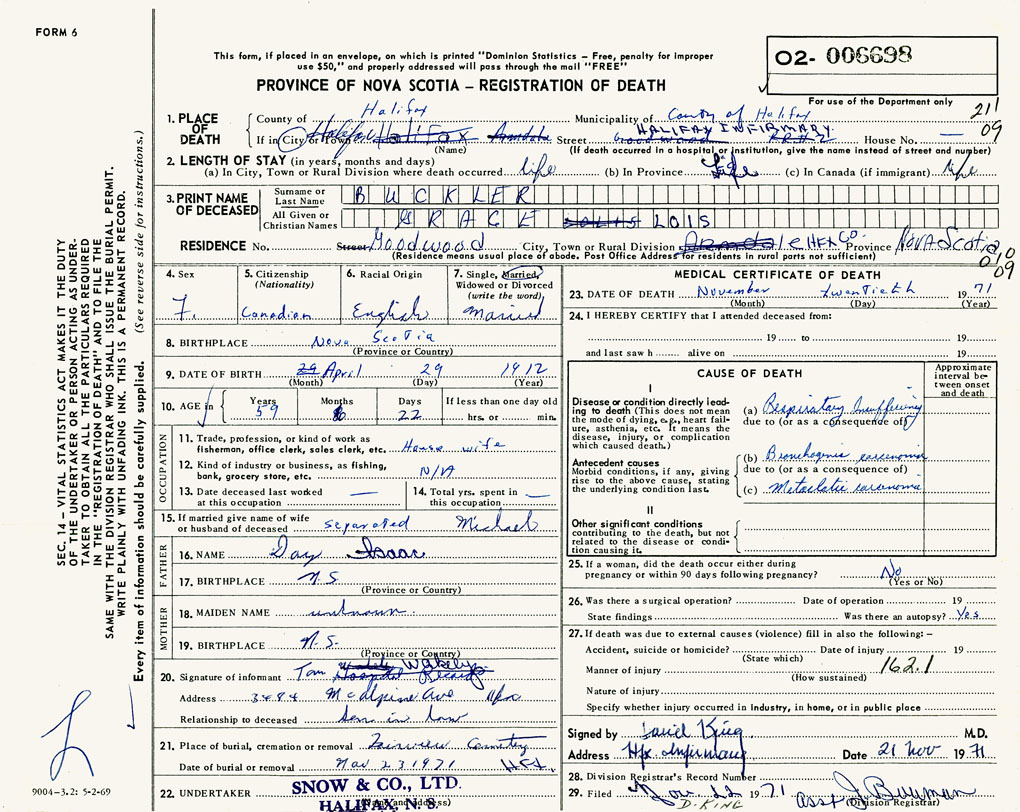 FORM 6
This form, if placed in an envelope, on which is printed "Dominion Statistics – Free, penalty for improper
use $50," and properly addressed will pass through the mail "FREE"
O2- 006698
PROVINCE OF NOVA SCOTIA – REGISTRATION OF DEATH
For use of the Department only
211
09
1. PLACE OF DEATH
County of Halifax Municipality of County of Halifax
If in City or Town Halifax Halifax Armdale Street Goodwood HALIFAX INFIRMARY R.R.#2 House No. —
(Name) (If death occurred in a hospital or institution, give the name instead of street and number)
2. LENGTH OF STAY (in years, months and days)
(a) In City, Town or Rural Division where death occurred life (b) In Province life (c) In Canada (if immigrant) life
3. PRINT NAME OF DECEASED
Surname or Last Name BUCKLER
All Given or Christian Names GRACE LOIS
RESIDENCE No. Street Goodwood City, Town or Rural Division Armdale HFX CO. Province NOVA Scotia
(Residence means usual place of abode. Post Office Address for residents in rural parts not sufficient)
010
009
4. Sex F.
5. Citizenship (Nationality) Canadian
6. Racial Origin English
7. Single, Married, Widowed or Divorced (write the word) Married
8. BIRTHPLACE Nova Scotia
(Province or Country)
9. DATE OF BIRTH 29 April 29 1912
(Month) (Day) (Year)
10. AGE in Years 59 Months Days 22 If less than one day old
hrs. or min.
OCCUPATION
11. Trade, profession, or kind of work as fisherman, office clerk, sales clerk, etc. House wife
12. Kind of industry or business, as fishing, bank, grocery store, etc. N/A
13. Date deceased last worked at this occupation —
14. Total yrs. spent in this occupation —
15. If married give name of wife or husband of deceased separated Michael
FATHER
16. NAME Day Isaac
17. BIRTHPLACE N.S.
(Province or Country)
MOTHER
18. MAIDEN NAME unknown
19. BIRTHPLACE N.S.
(Province or Country)
20. Signature of informant Tom Wakely Hospital Records
Address 3484 McAlpine Ave Hfx
Relationship to deceased Son in law
21. Place of burial, cremation or removal Fairview Cemetery
Date of burial or removal Nov 23 1971 HFX
22. UNDERTAKER SNOW & CO., LTD.
HALIFAX, N. S.
(Name and address)
MEDICAL CERTIFICATE OF DEATH
23. DATE OF DEATH November twentieth 1971
(Month) (Day) (Year)
24. I HEREBY CERTIFY that I attended deceased from:
19 to 19
and last saw h alive on 19
CAUSE OF DEATH
Approximate interval between onset and death
I
Disease or condition directly leading to death (This does not mean the mode of dying, e.g., heart failure, asthenia, etc. It means the disease, injury, or complication which caused death.)
(a) Respiratory Insufficiency
due to (or as a consequence of)
Antecedent causes
Morbid conditions, if any, giving rise to the above cause, stating the underlying condition last.
(b) Bronchogenic carcinoma
due to (or as a consequence of)
(c) Metastatic carcinoma
II
Other significant conditions contributing to the death, but not related to the disease or condition causing it.
25. If a woman, did the death occur either during pregnancy or within 90 days following pregnancy? No
(Yes or No)
26. Was there a surgical operation? Date of operation 19
State findings Was there an autopsy? Yes
27. If death was due to external causes (violence) fill in also the following: –
Accident, suicide or homicide? Date of injury 19
(State which)
Manner of injury 162.1
(How sustained)
Nature of injury
Specify whether injury occurred in industry, in home, or in public place
Signed by M.D.
Address Hfx Infirmary Date 21 Nov 1971
28. Division Registrar's Record Number
29. Filed Nov 22 1971 Asst J. Bauman
D. KING Division Registrar
SEC. 14 – VITAL STATISTICS ACT MAKES IT THE DUTY
OF THE UNDERTAKER OR PERSON ACTING AS UNDER-
TAKER TO OBTAIN ALL THE PARTICULARS REQUIRED
IN THE "REGISTRATION OF DEATH" AND TO FILE THE
SAME WITH THE DIVISION REGISTRAR WHO SHALL ISSUE THE BURIAL PERMIT.
WRITE PLAINLY WITH UNFADING INK. THIS IS A PERMANENT RECORD.
Every item of information should be carefully supplied. (See reverse side for instructions.)
9004–3.2: 5-2-69